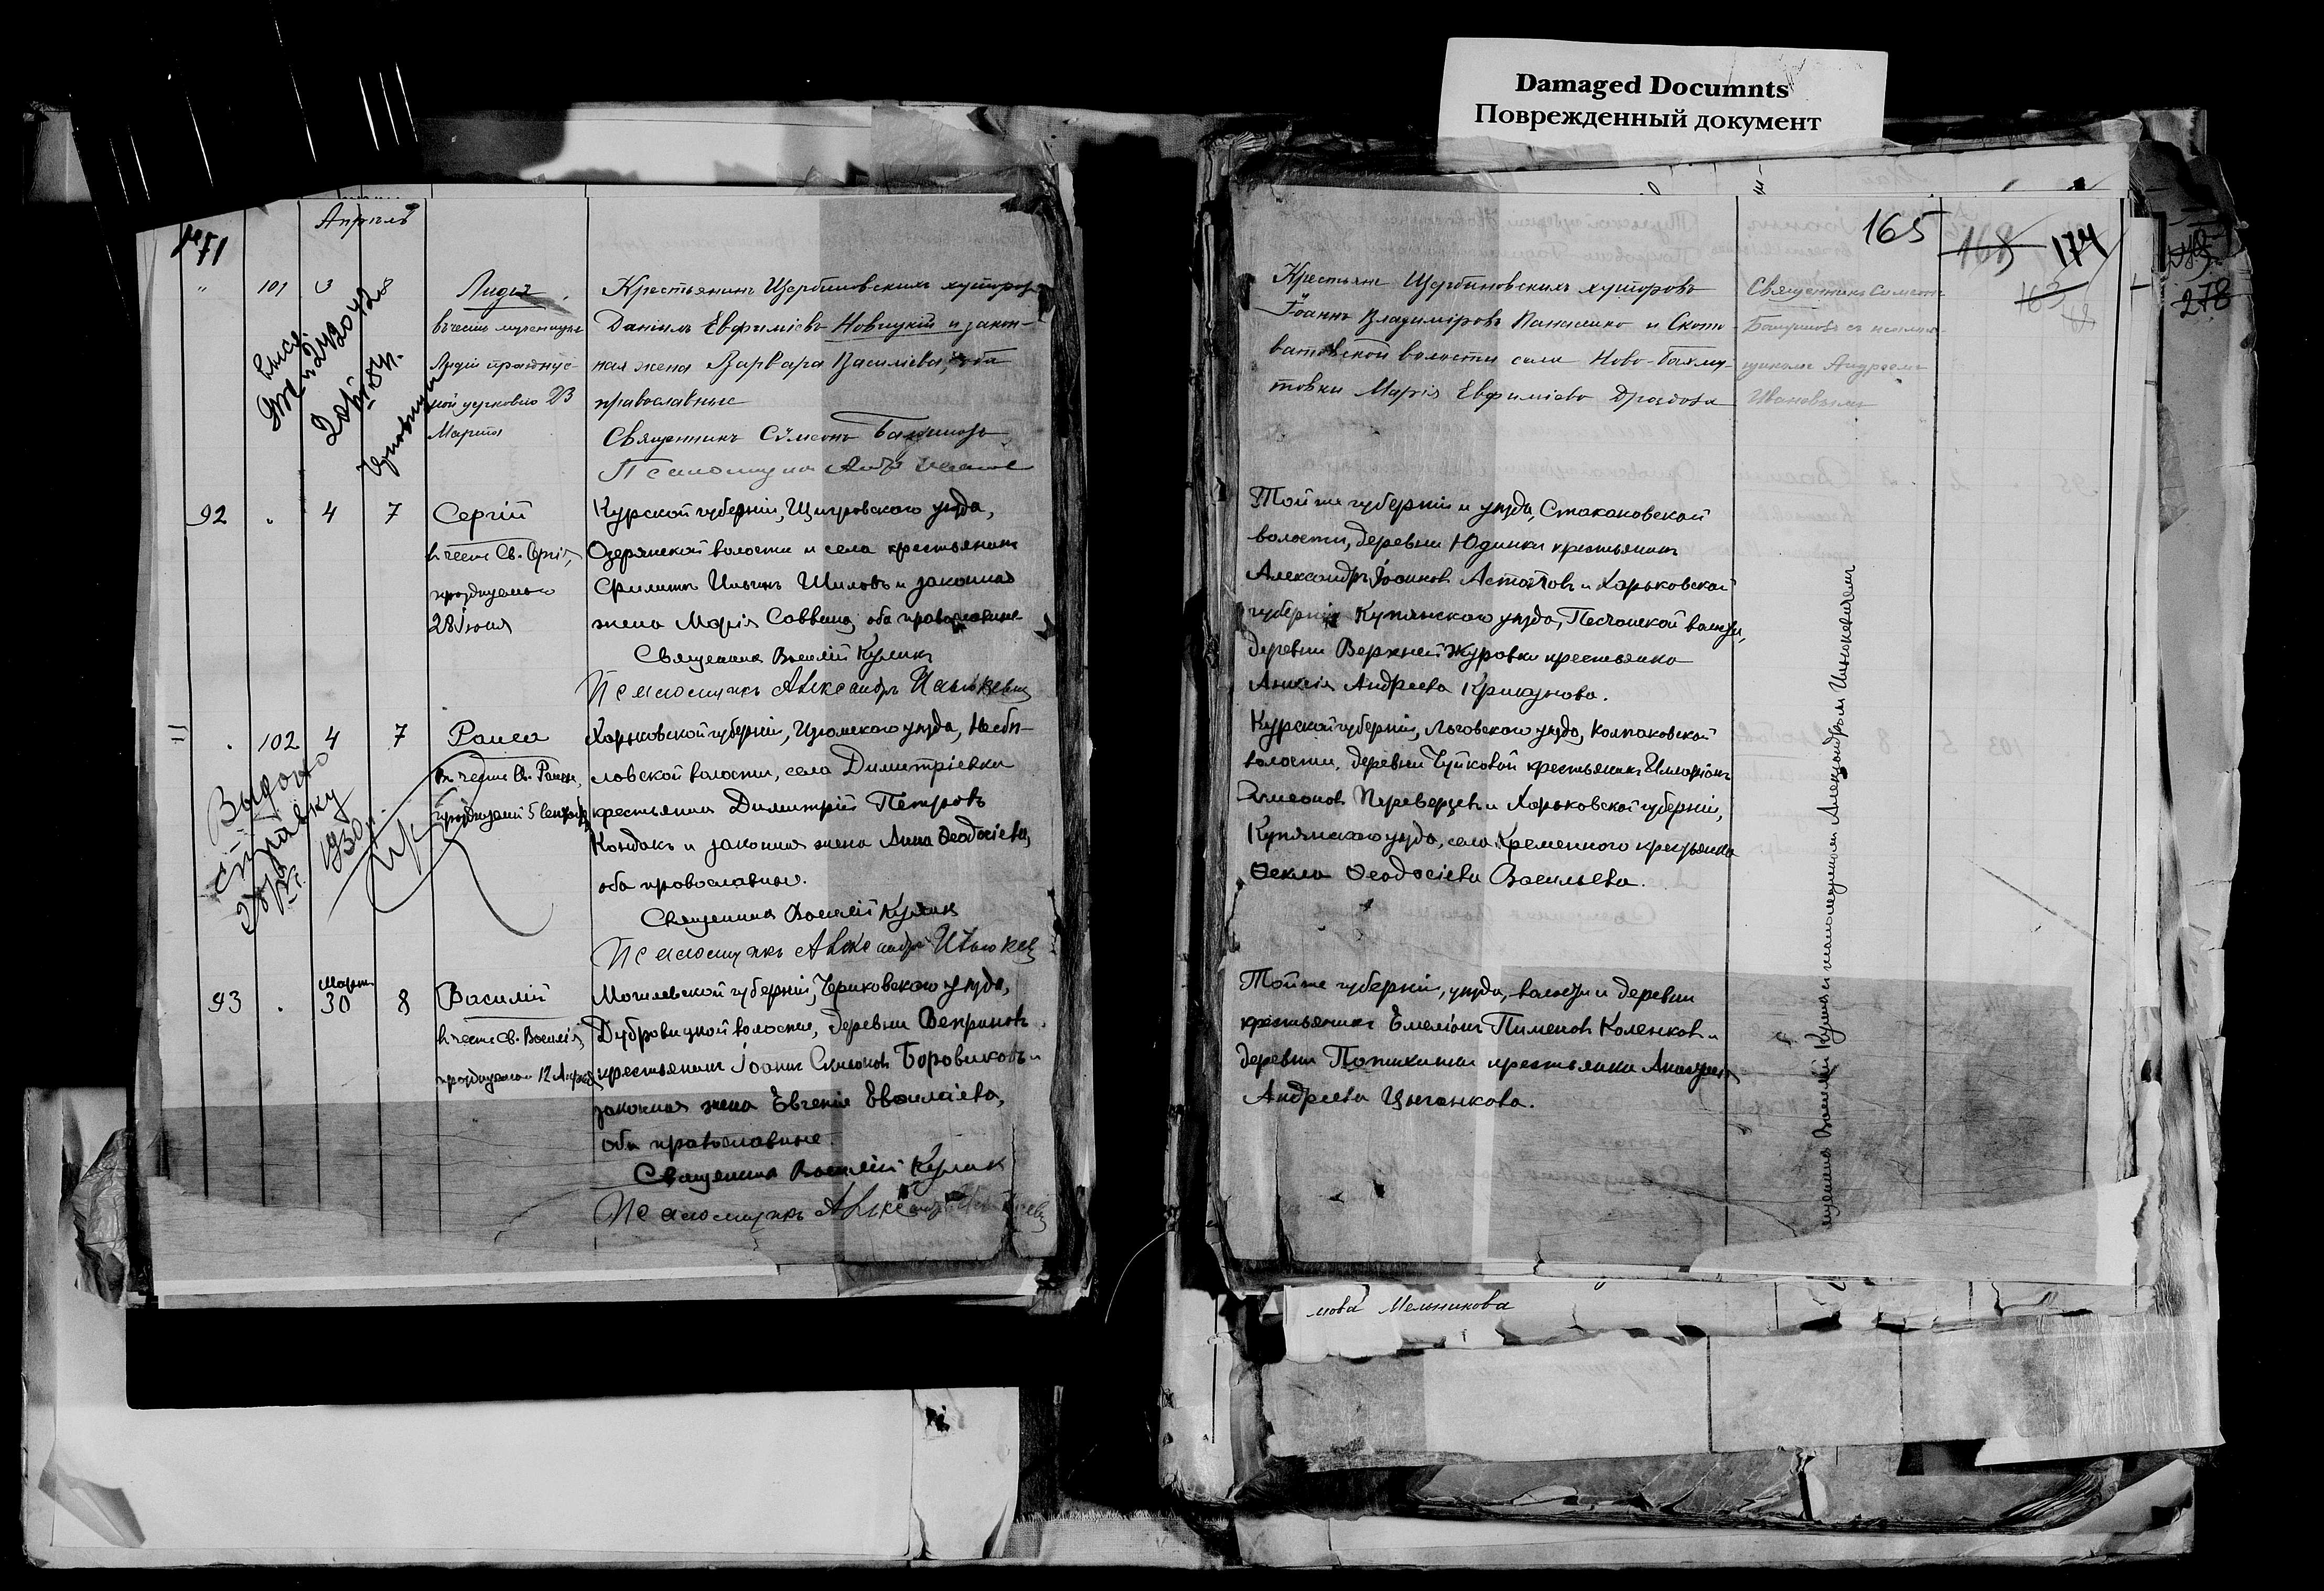 Damaged Documnts
Поврежденный документ
Апрѣль
71
101 3 8
Лидія
въ честь мученицы
Лидіи празднуе-
мой церковію 23
Марта
Крестьянинъ Щербиновскихъ хуторовъ
Даніилъ Евфиміевъ Новицкій и закон-
ная жена Варвара Василіева, оба
православные
Священникъ Сѵмеонъ
92 4 7
Сергій
въ честь Св. Сергія,
празднуемаго
28 Іюня
Курской губерніи, Щигровскаго уѣзда,
Озерянской волости и села крестьянинъ
Филиппъ Ильинъ Шиловъ и законная
жена Марія Саввина, оба православные
Священникъ Василій Куликъ
Псаломщикъ Александръ
102 4 7
Раиса
въ честь Св. Раисы,
празднуемой 5 Сентяб.
Харьковской губерніи, Изюмскаго уѣзда,
ловской волости, села Димитріевки
крестьянинъ Димитрій Петровъ
Кондакъ и законная жена Анна Ѳеодосіева,
оба православные.
Священникъ Василій Куликъ
Псаломщикъ Александръ
Выдано
справку
1930
93 Марта 30 8
Василій
въ честь Св. Василія,
празднуемаго 12 Апрѣля
Могилевской губерніи, Чериковскаго уѣзда,
Дубровицкой волости, деревни Вепринъ
крестьянинъ Іоаннъ Симоновъ Боровиковъ и
законная жена Евгенія
оба православные
Священникъ Василій Куликъ
Псаломщикъ Александръ
165 168 174
163
278
Крестьяне Щербиновскихъ хуторовъ
Іоаннъ Владиміровъ Панасенко и Ското
ватовской волости села Ново-Бахму-
товки Марія Евфиміева Дроздова
Священникъ Симеонъ
съ псалом-
щикомъ Андреемъ
Ивановымъ
Той же губерніи и уѣзда, Стакановской
волости, деревни Юдинки крестьянинъ
Александръ Іоанновъ Астаповъ и Харьковской
губерніи Купянскаго уѣзда, Песчанской волости,
деревни Верхней Журовки крестьянка
Андреева Крикунова.
Курской губерніи, Льговскаго уѣзда, Колпаковской
волости, деревни Чуйковой крестьянинъ Иларіонъ
Симеоновъ Переверзевъ и Харьковской губерніи,
Купянскаго уѣзда, села Кременного крестьянка
Ѳекла Ѳеодосіева Васильева.
Той же губерніи, уѣзда, волости и деревни
крестьянинъ Емеліанъ Пименовъ Коленковъ и
деревни крестьянка
Андреева Цыганкова.
Василій Куликъ и псаломщикомъ Александромъ
мова Мельникова